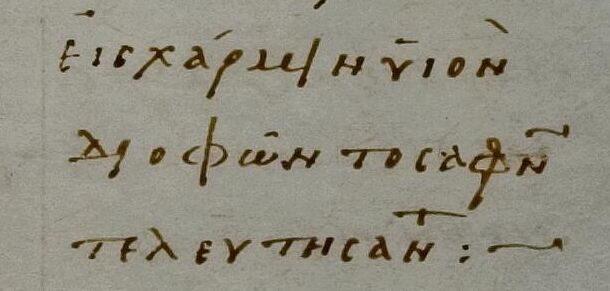 εἰς χάρμην ὑιὸν
διοφῶντος ἀφν͂
τελευτησαν̅τ :~